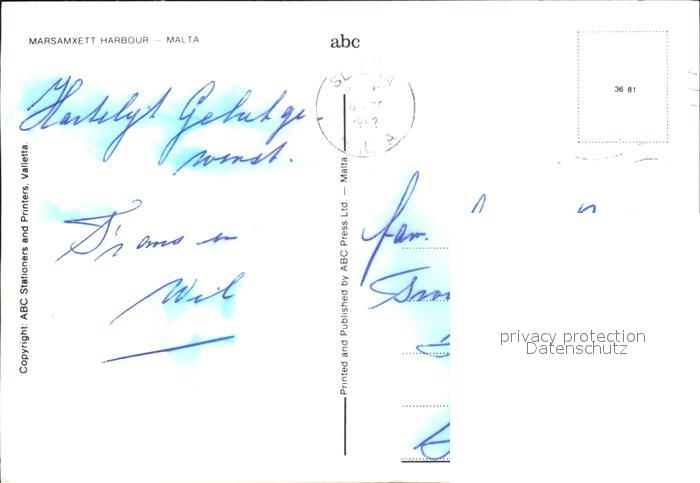 MARSAMXETT HARBOUR — MALTA
abc
36 81
Hartelijk Geluk ge-
wenst.
Frans en
Wil
fam.
Copyright: ABC Stationers and Printers, Valletta.
Printed and Published by ABC Press Ltd. — Malta.
privacy protection
Datenschutz